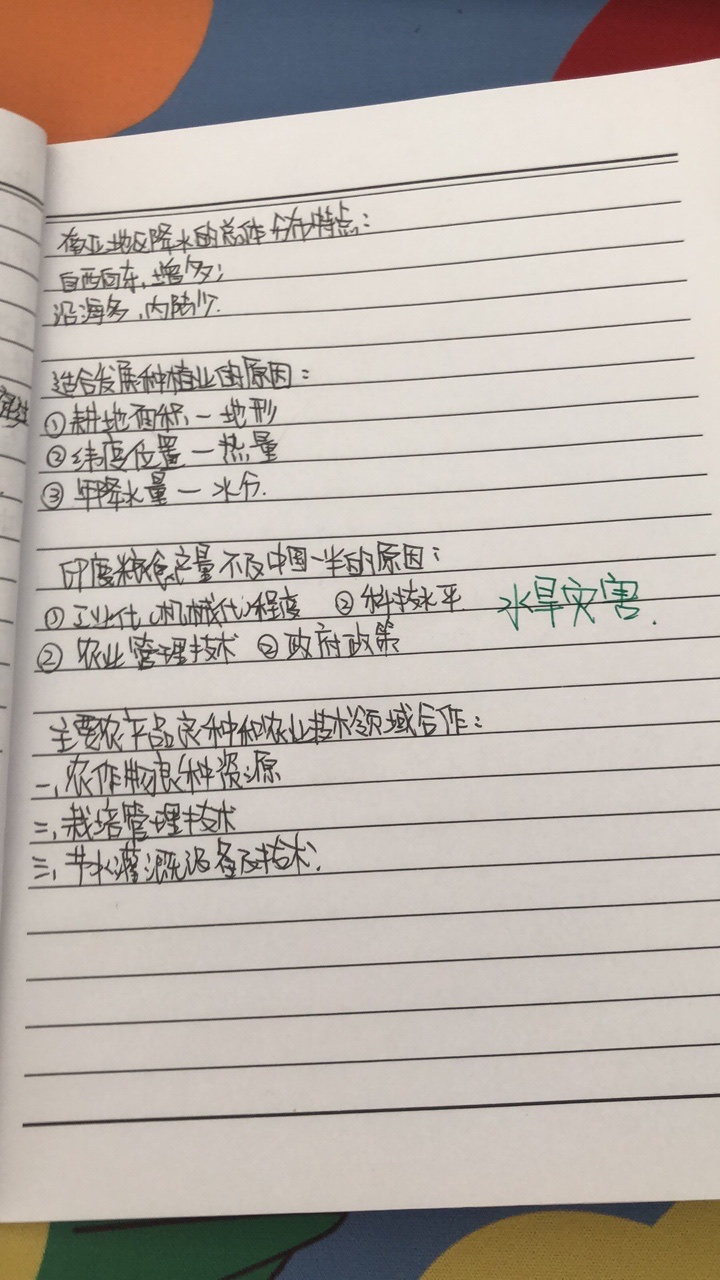 南亚地区降水的总体分布特点：
自西向东，增多；
沿海多，内陆少.
适合发展种植业的原因：
①耕地面积－地形
②纬度位置－热量
③年降水量－水分.
印度粮食产量不及中国一半的原因：
①工业化（机械化）程度 ②科技水平 水旱灾害.
②农业管理技术 ②政府政策
主要农产品良种和农业技术领域合作：
一，农作物良种资源
二，栽培管理技术
三，节水灌溉设备及技术.